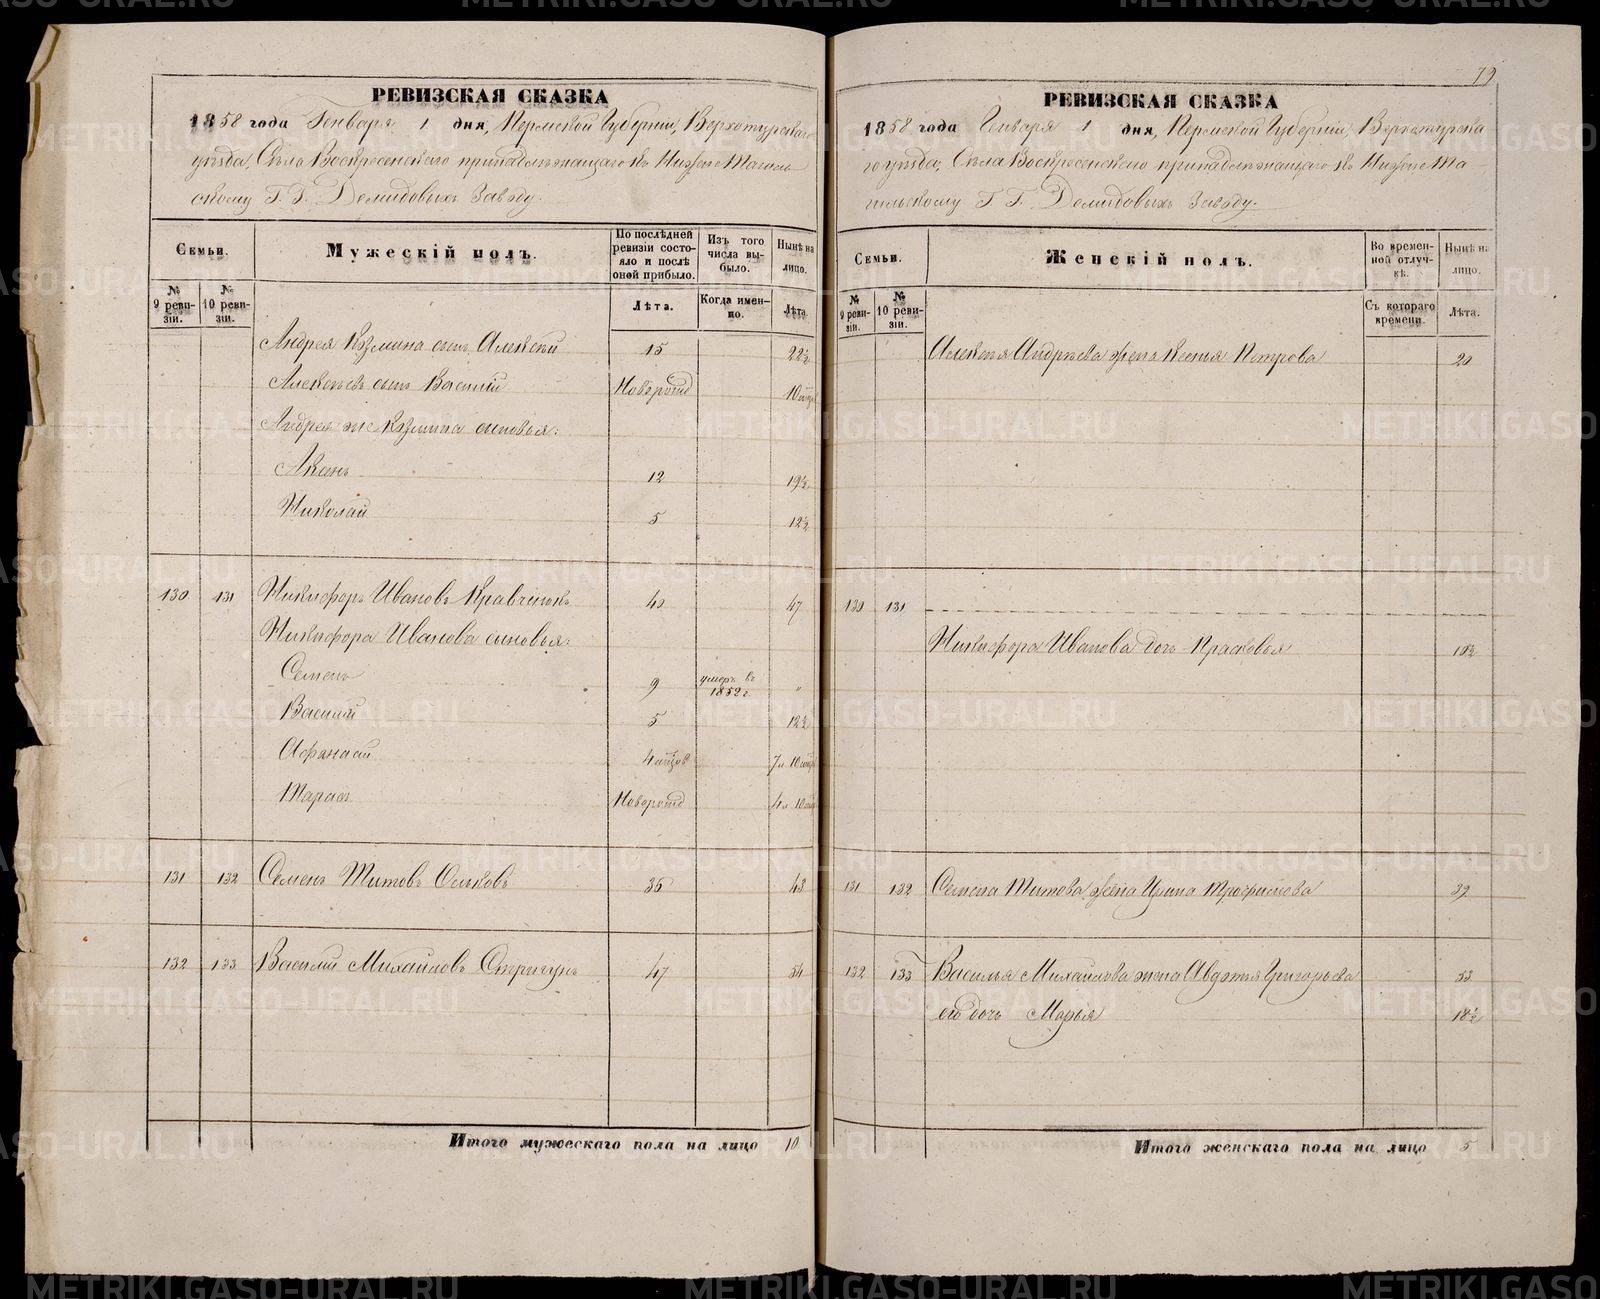 79
РЕВИЗСКАЯ СКАЗКА
1858 года Генваря 1 дня, Пермской Губернии, Верхотурскаго
уѣзда, Села Воскресенскаго принадлежащаго къ Нижне Тагиль
скому Г. Г. Демидовыхъ Заводу.
Семьи.
Мужескій полъ.
По послѣдней ревизіи состояло и послѣ оной прибыло.
Изъ того числа выбыло.
Нынѣ на лицо.
№ 9 ревизіи.
№ 10 ревизіи.
Лѣта.
Когда именно.
Лѣта.
Андрея Козмина сынъ Алексѣй 15 22½
Алексѣевъ сынъ Василій Новорожд 10 мѣся
Андрея же Козмина сыновья:
12 19½
Николай 5 12½
130 131 Никифоръ Ивановъ 40 47
Никифора Иванова сыновья:
Семенъ 9 умеръ въ 1852 г. "
Василій 5 12½
Афанасій 4 мѣсцов 7 л 10 мѣся
Тарасъ Новорожд 4 л 10 мѣся
131 132 Семенъ Титовъ Осиковъ 36 43
132 133 Василій Михайловъ Стригунъ 47 54
Итого мужескаго пола на лицо 10
РЕВИЗСКАЯ СКАЗКА
1858 года Генваря 1 дня, Пермской Губерніи, Верхотурска
го уѣзда, Села Воскресенскаго принадлежащаго къ Нижне Та-
гильскому Г. Г. Демидовыхъ Заводу.
Семьи.
Женскій полъ.
Во временной отлучкѣ.
Нынѣ на лицо.
№ 9 ревизіи.
№ 10 ревизіи.
Съ котораго времени.
Лѣта.
Алексѣя Андреева жена Ксенья Петрова 20
130 131
Никифора Иванова дочь Прасковья 10½
131 132 Семена Титова жена Ирина Трофимова 39
132 133 Василья Михайлова жена Авдотья Григорьева 53
его дочь Марья 18½
Итого женскаго пола на лицо 5
METRIKI.GASO-URAL.RU